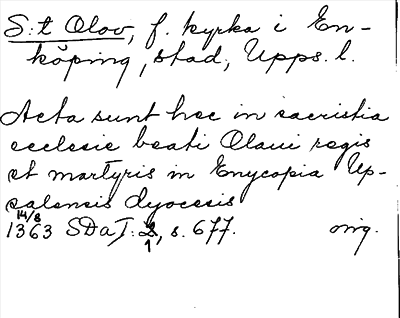 S:t Olov, f. kyrka i En-
köping, stad, Upps. l.
Acta sunt hec in sacristia
ecclesie beati Olaui regis
et martyris in Enycopia Up-
salensis dyocesis
14/8
1363 SDaJ: 1, s. 677. orig.